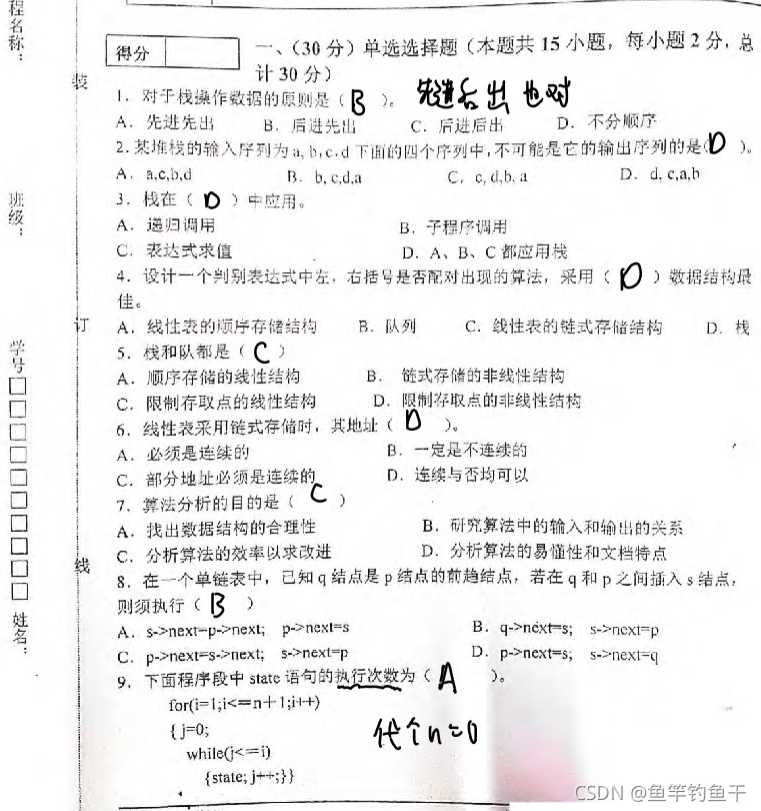 程名称：
班级：
学号□□□□□□□□□□
姓名：
装
订
线
得分
一、（30 分）单选选择题（本题共 15 小题，每小题 2 分，总
计 30 分）
1．对于栈操作数据的原则是（ B ）。 先进后出 也对
A．先进先出 B．后进先出 C．后进后出 D．不分顺序
2.某堆栈的输入序列为 a, b, c, d 下面的四个序列中,不可能是它的输出序列的是( D )。
A．a,c,b,d B．b, c,d,a C．c, d,b, a D．d, c,a,b
3．栈在（ D ）中应用。
A．递归调用 B．子程序调用
C．表达式求值 D．A、B、C 都应用栈
4．设计一个判别表达式中左，右括号是否配对出现的算法，采用（ D ）数据结构最
佳。
A．线性表的顺序存储结构 B．队列 C．线性表的链式存储结构 D．栈
5．栈和队都是（ C ）
A．顺序存储的线性结构 B． 链式存储的非线性结构
C．限制存取点的线性结构 D．限制存取点的非线性结构
6．线性表采用链式存储时，其地址（ D ）。
A．必须是连续的 B．一定是不连续的
C．部分地址必须是连续的 D．连续与否均可以
7．算法分析的目的是（ C ）
A．找出数据结构的合理性 B．研究算法中的输入和输出的关系
C．分析算法的效率以求改进 D．分析算法的易懂性和文档特点
8．在一个单链表中，已知 q 结点是 p 结点的前趋结点，若在 q 和 p 之间插入 s 结点，
则须执行（ B ）
A．s->next=p->next; p->next=s B．q->next=s; s->next=p
C．p->next=s->next; s->next=p D．p->next=s; s->next=q
9．下面程序段中 state 语句的执行次数为（ A ）。
for(i=1;i<=n+1;i++)
{ j=0; 代个n=0
while(j<=i)
{state; j++;}}
CSDN @鱼竿钓鱼干